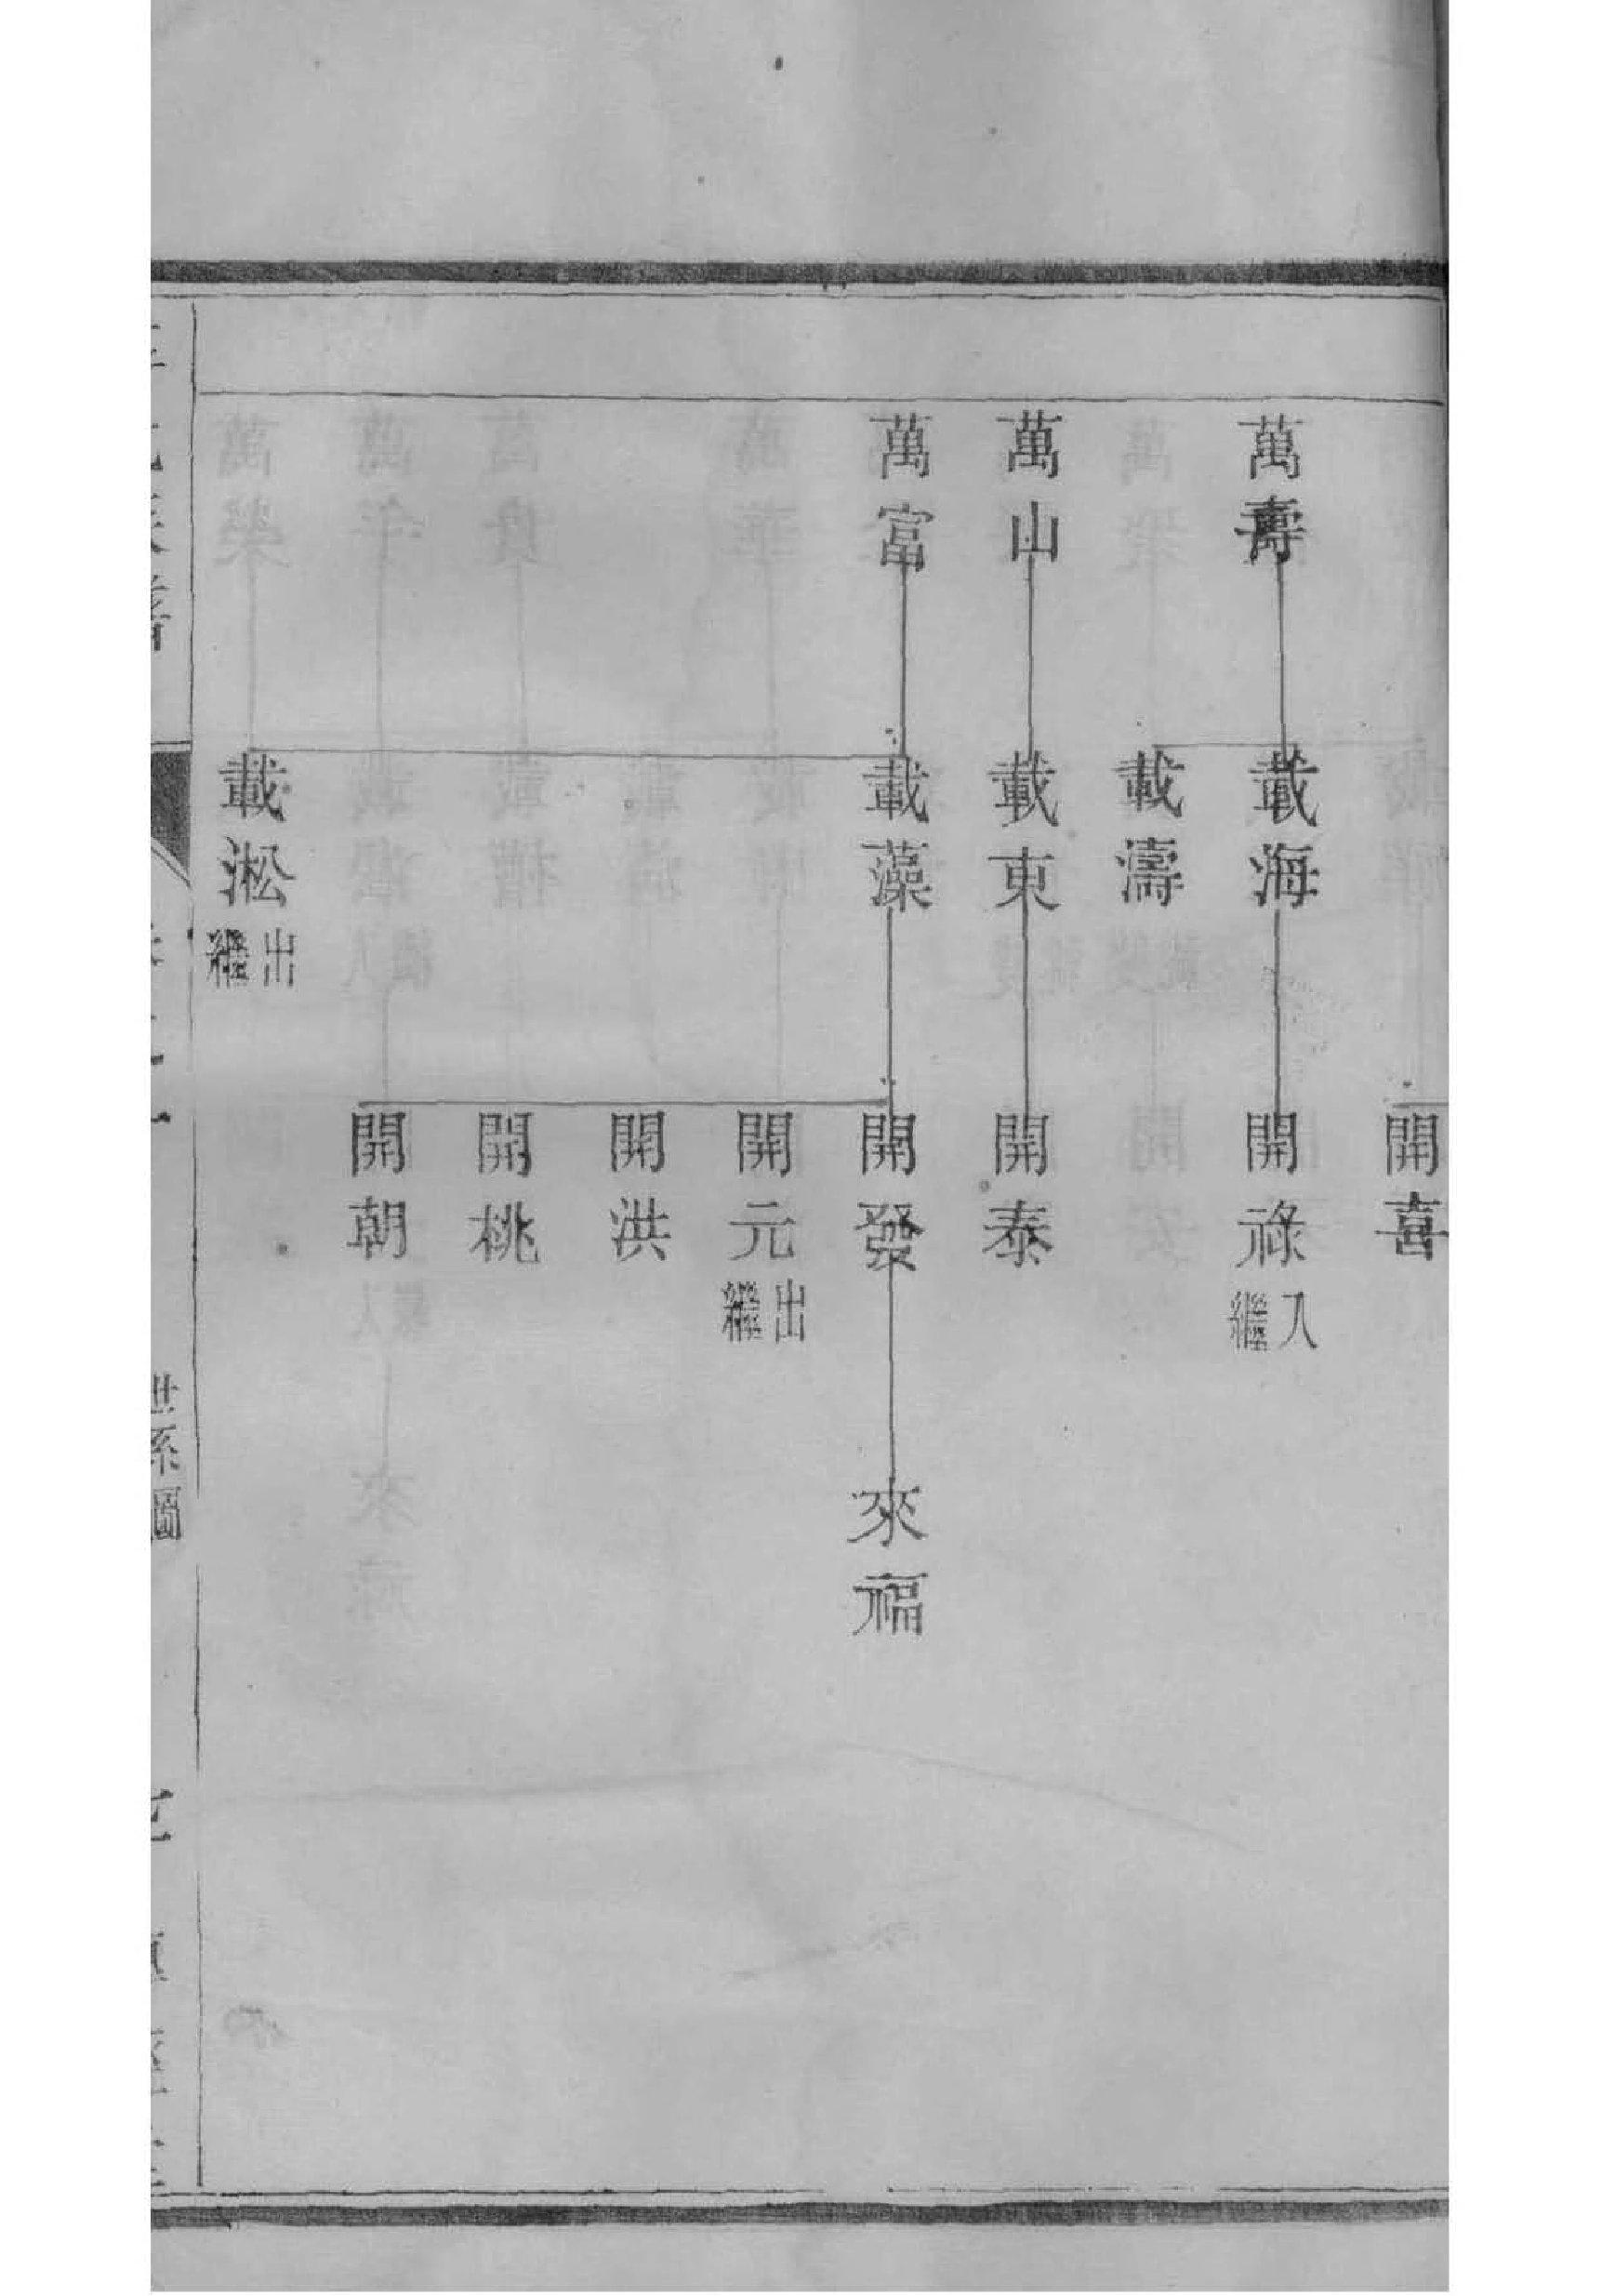 開喜
萬壽
載海
開祿
入繼
載濤
萬山
載東
開泰
萬富
載藻
開發
來福
開元
出繼
開洪
開桃
開朝
載淞
出繼
世系圖